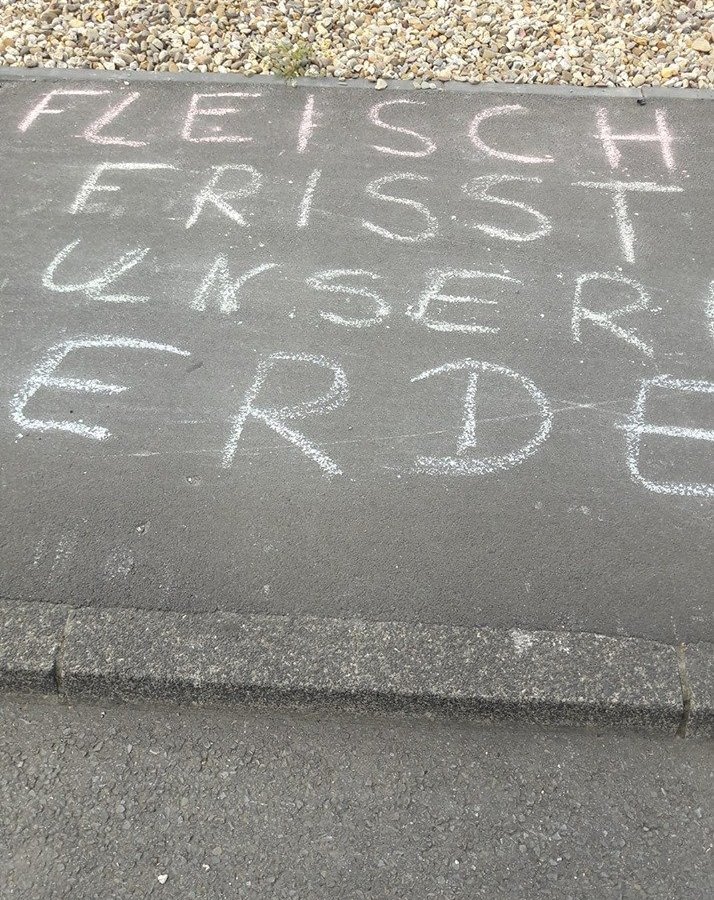 FLEISCH
ERISST
UNSERE
ERDE